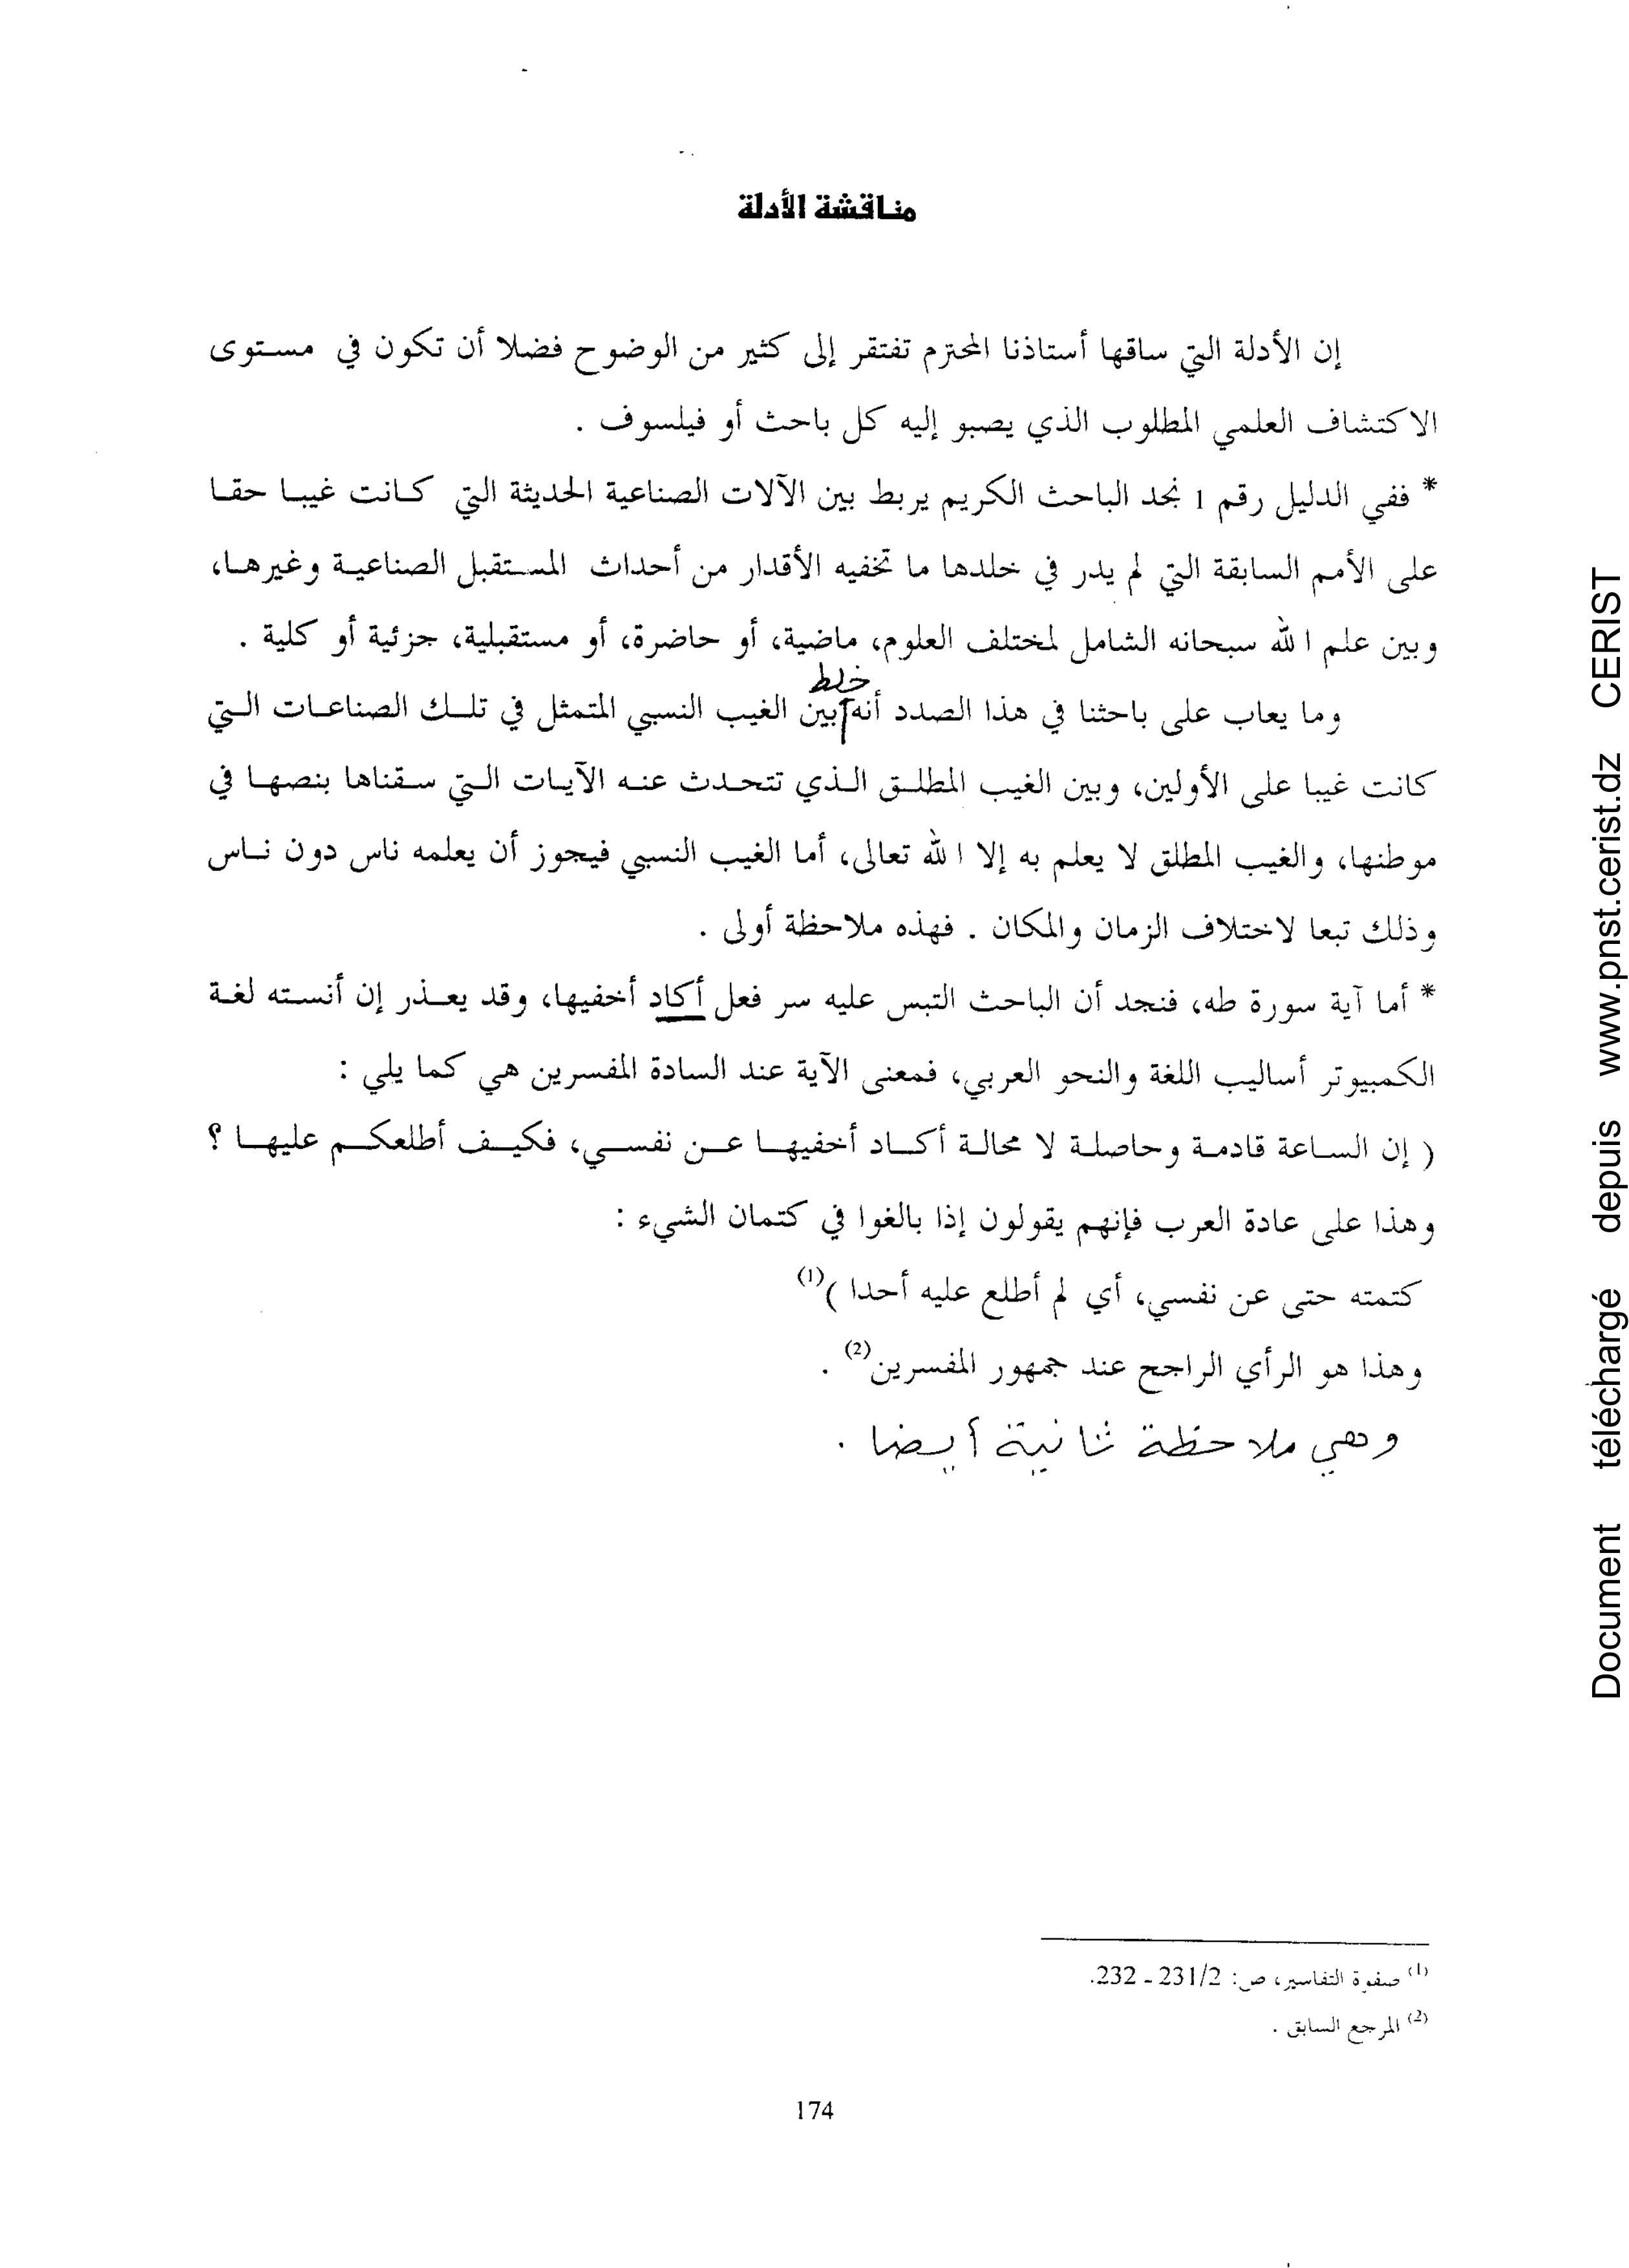 مناقشة الأدلة
إن الأدلة التي ساقها أستاذنا المحترم تفتقر إلى كثير من الوضوح فضلا أن تكون في مستوى
الاكتشاف العلمي المطلوب الذي يصبو إليه كل باحث أو فيلسوف .
* ففي الدليل رقم 1 نجد الباحث الكريم يربط بين الآلات الصناعية الحديثة التي كانت غيبا حقا
على الأمم السابقة التي لم يدر في خلدها ما تخفيه الأقدار من أحداث المستقبل الصناعية وغيرها،
وبين علم الله سبحانه الشامل لمختلف العلوم، ماضية، أو حاضرة، أو مستقبلية، جزئية أو كلية .
وما يعاب على باحثنا في هذا الصدد أنه خلط بين الغيب النسبي المتمثل في تلك الصناعات التي
كانت غيبا على الأولين، وبين الغيب المطلق الذي تتحدث عنه الآيات التي سقناها بنصها في
موطنها، والغيب المطلق لا يعلم به إلا الله تعالى، أما الغيب النسبي فيجوز أن يعلمه ناس دون ناس
وذلك تبعا لاختلاف الزمان والمكان . فهذه ملاحظة أولى .
* أما آية سورة طه، فنجد أن الباحث التبس عليه سر فعل أكاد أخفيها، وقد يعذر إن أنسته لغة
الكمبيوتر أساليب اللغة والنحو العربي، فمعنى الآية عند السادة المفسرين هي كما يلي :
( إن الساعة قادمة وحاصلة لا محالة أكاد أخفيها عن نفسي، فكيف أطلعكم عليها ؟
وهذا على عادة العرب فإنهم يقولون إذا بالغوا في كتمان الشيء :
كتمته حتى عن نفسي، أي لم أطلع عليه أحدا )(1)
وهذا هو الرأي الراجح عند جمهور المفسرين(2) .
وهي ملاحظة ثانية أيضا .
(1) صفوة التفاسير، ص: 231/2 - 232.
(2) المرجع السابق .
174
Document téléchargé depuis www.pnst.cerist.dz CERIST